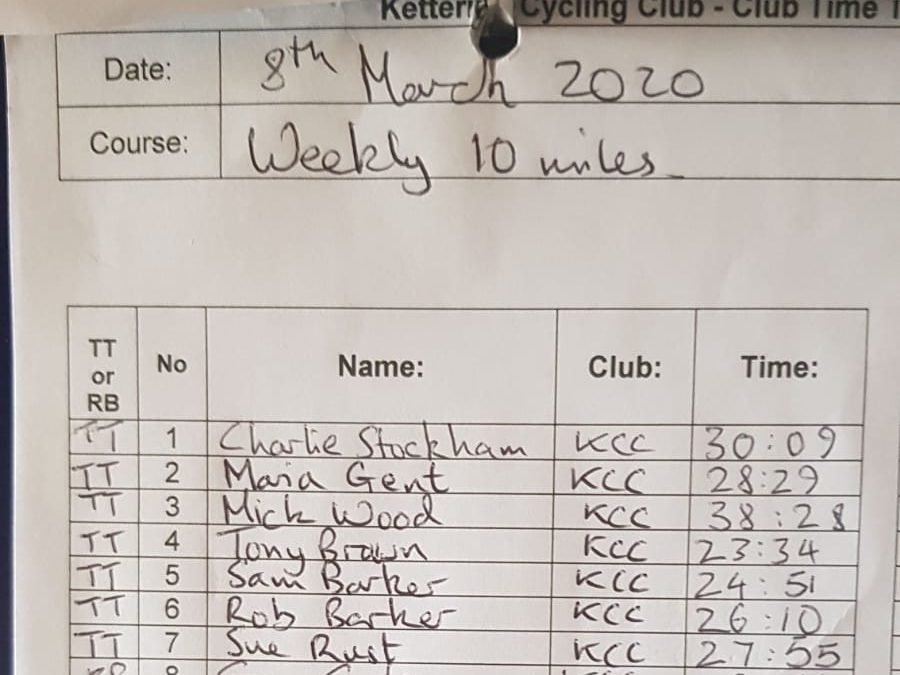 Cycling Club - Club Time
Date: 8th March 2020
Course: Weekly 10 miles
TT or RB No Name: Club: Time:
TT 1 Charlie Stockham KCC 30:09
TT 2 Maria Gent KCC 28:29
TT 3 Mick Wood KCC 38:28
TT 4 Tony Brown KCC 23:34
TT 5 Sam Barker KCC 24:51
TT 6 Rob Barker KCC 26:10
TT 7 Sue Rust KCC 27:55